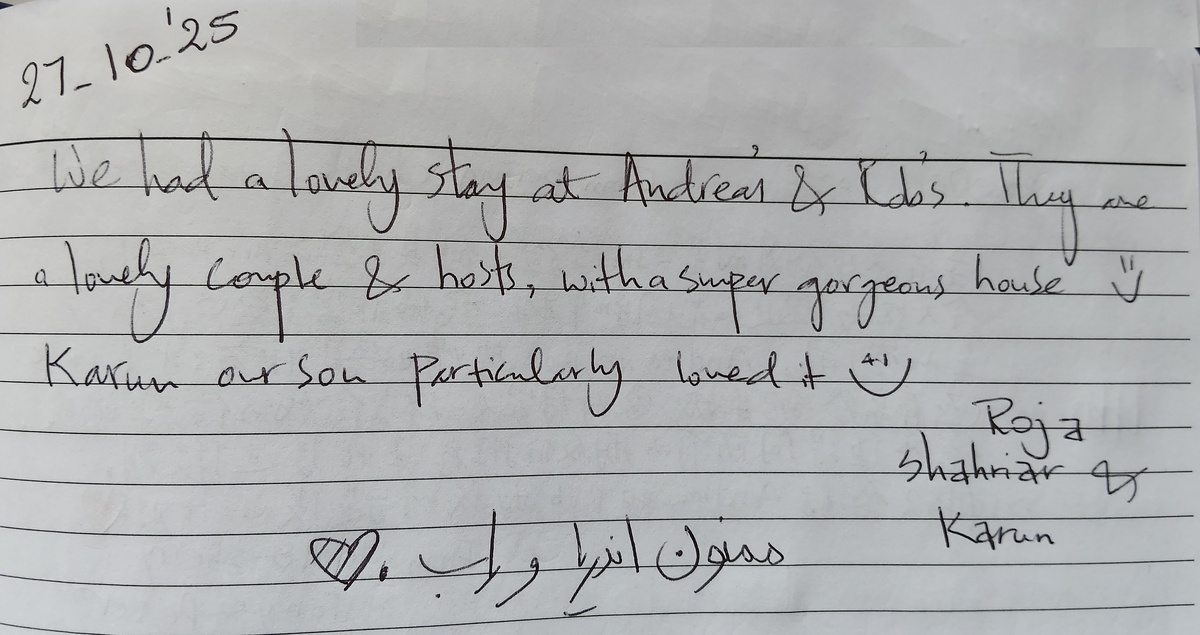 27-10-'25
We had a lovely stay at Andrea's & Rob's. They are
a lovely couple & hosts, with a super gorgeous house
Karun our son particularly loved it
Roja
Shahriar &
Karun
ممنون اندریا و راب.